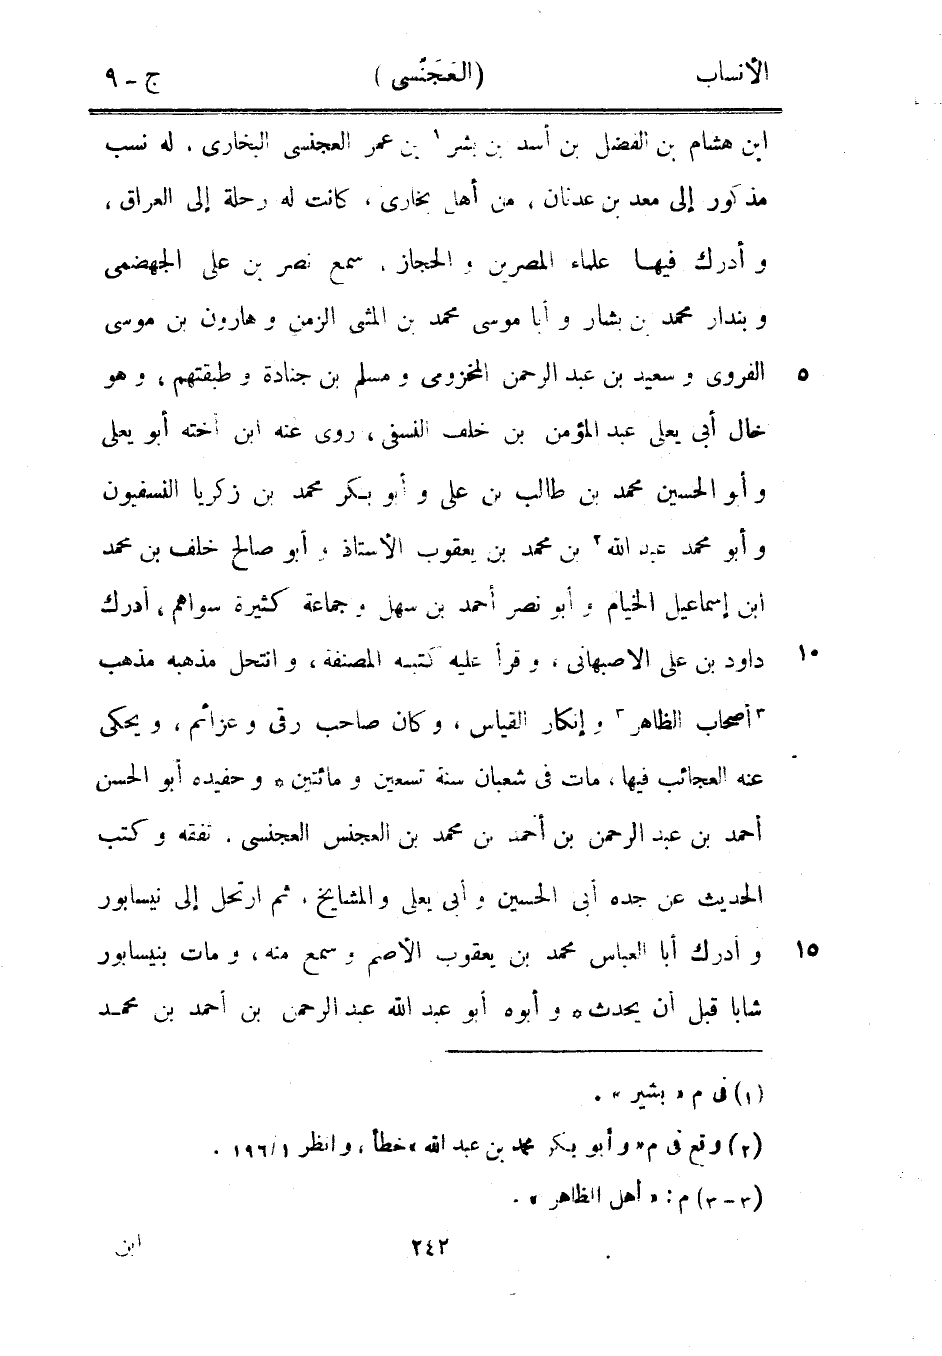 الأنساب (العَجَنَّسى) ج - ٩
ابن هشام بن الفضل بن أسد بن بشر١ بن عمر العجنسى البخارى . له نسب
مذكور إلى معد بن عدنان ، من أهل بخارى ، كانت له رحلة إلى العراق ،
و أدرك فيها علماء المصرين و الحجاز . سمع نصر بن على الجهضمى
و بندار محمد بن بشار و أبا موسى محمد بن المثنى الزمن و هارون بن موسى
الفروى و سعيد بن عبد الرحمن المخزومى و مسلم بن جنادة و طبقتهم ، و هو ٥
خال أبى يعلى عبد المؤمن بن خلف النسفى ، روى عنه ابن أخته أبو يعلى
و أبو الحسين محمد بن طالب بن على و أبو بكر محمد بن زكريا النسفيون
و أبو محمد عبد الله٢ بن محمد بن يعقوب الأستاذ و أبو صالح خلف بن محمد
ابن إسماعيل الخيام و أبو نصر أحمد بن سهل و جماعة كثيرة سواهم ، أدرك
داود بن على الاصبهانى ، و قرأ عليه كتبه المصنفة ، و انتحل مذهبه مذهب ١٠
٣أصحاب الظاهر٣ و إنكار القياس ، و كان صاحب رقى و عزائم ، و يحكى
عنه العجائب فيها ، مات فى شعبان سنة تسعين و مائتين * و حفيده أبو الحسن
أحمد بن عبد الرحمن بن أحمد بن محمد بن العجنس العجنسى . تفقه و كتب
الحديث عن جده أبى الحسين و أبى يعلى و المشايخ ، ثم ارتحل إلى نيسابور
و أدرك أبا العباس محمد بن يعقوب الأصم و سمع منه ، و مات بنيسابور ١٥
شابا قبل أن يحدث * و أبوه أبو عبد الله عبد الرحمن بن أحمد بن محمد
(١) فى م « بشير » .
(٢) وقع فى م « و أبو بكر محمد بن عبد الله » خطأ ، و انظر ١٩٦/١ .
(٣ - ٣) م : « أهل الظاهر » .
٢٤٢ ابن